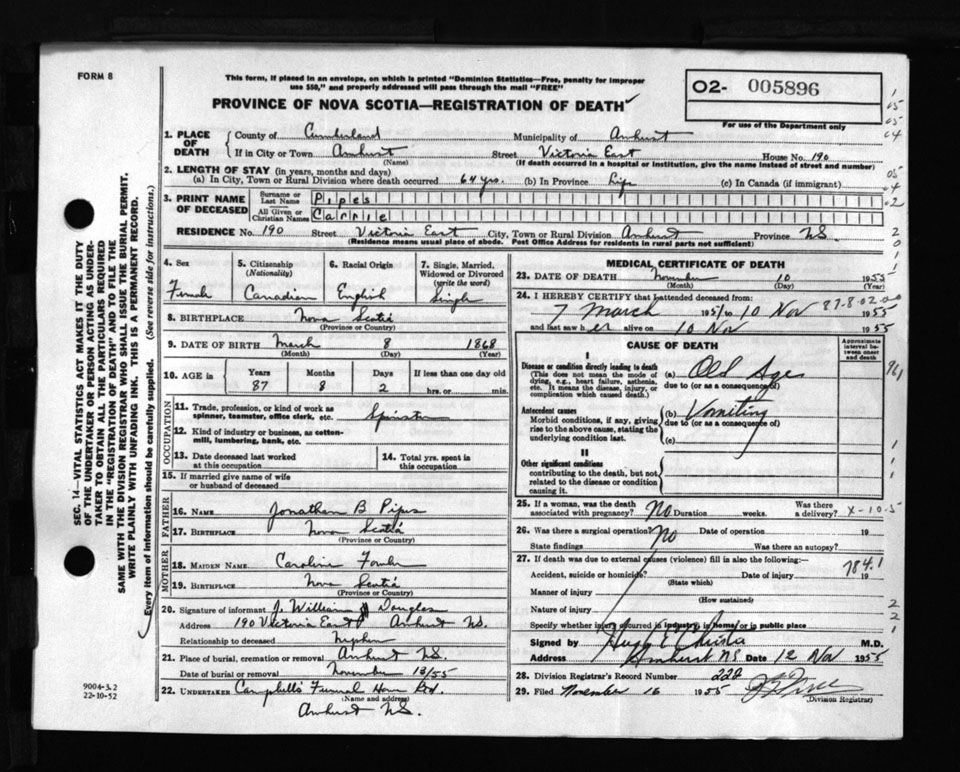 FORM 8
This form, if placed in an envelope, on which is printed "Dominion Statistics—Free, penalty for improper
use $50," and properly addressed will pass through the mail "FREE"
PROVINCE OF NOVA SCOTIA—REGISTRATION OF DEATH
O2- 005896
For use of the Department only
SEC. 14—VITAL STATISTICS ACT MAKES IT THE DUTY
OF THE UNDERTAKER OR PERSON ACTING AS UNDER-
TAKER TO OBTAIN ALL THE PARTICULARS REQUIRED
IN THE "REGISTRATION OF DEATH" AND TO FILE THE
SAME WITH THE DIVISION REGISTRAR WHO SHALL ISSUE THE BURIAL PERMIT.
WRITE PLAINLY WITH UNFADING INK. THIS IS A PERMANENT RECORD.
Every item of information should be carefully supplied. (See reverse side for instructions.)
1. PLACE OF DEATH
County of Cumberland Municipality of Amherst
If in City or Town Amherst Street Victoria East House No. 190
(Name) (If death occurred in a hospital or institution, give the name instead of street and number)
2. LENGTH OF STAY (in years, months and days)
(a) In City, Town or Rural Division where death occurred 64 yrs. (b) In Province Life (c) In Canada (if immigrant)
3. PRINT NAME OF DECEASED
Surname or Last Name Pipes
All Given or Christian Names Carrie
RESIDENCE No. 190 Street Victoria East City, Town or Rural Division Amherst Province N.S.
(Residence means usual place of abode. Post Office Address for residents in rural parts not sufficient)
4. Sex Female
5. Citizenship (Nationality) Canadian
6. Racial Origin English
7. Single, Married, Widowed or Divorced (write the word) Single
8. BIRTHPLACE Nova Scotia
(Province or Country)
9. DATE OF BIRTH March 8 1868
(Month) (Day) (Year)
10. AGE in Years Months Days If less than one day old
87 8 2 hrs. or min.
OCCUPATION
11. Trade, profession, or kind of work as spinner, teamster, office clerk, etc. Spinster
12. Kind of industry or business, as cotton-mill, lumbering, bank, etc.
13. Date deceased last worked at this occupation
14. Total yrs. spent in this occupation
15. If married give name of wife or husband of deceased
FATHER
16. Name Jonathan B Pipes
17. Birthplace Nova Scotia
(Province or Country)
MOTHER
18. Maiden Name Caroline Fowler
19. Birthplace Nova Scotia
(Province or Country)
20. Signature of informant J. William Douglas
Address 190 Victoria East Amherst N.S.
Relationship to deceased Nephew
21. Place of burial, cremation or removal Amherst N.S.
Date of burial or removal November 13/55
22. Undertaker Campbell's Funeral Home Ltd.
(Name and address)
Amherst N.S.
9004-3.2
22-10-52
MEDICAL CERTIFICATE OF DEATH
23. DATE OF DEATH November 10 1955
(Month) (Day) (Year)
24. I HEREBY CERTIFY that I attended deceased from
7 March 1951 to 10 Nov 1955
and last saw her alive on 10 Nov 1955
CAUSE OF DEATH
Approximate interval between onset and death
I
Disease or condition directly leading to death
(This does not mean the mode of dying, e.g., heart failure, asthenia, etc. It means the disease, injury, or complication which caused death.)
(a) Old Age
due to (or as a consequence of)
Antecedent causes
Morbid conditions, if any, giving rise to the above cause, stating the underlying condition last.
(b) Vomiting
due to (or as a consequence of)
(c)
II
Other significant conditions
contributing to the death, but not related to the disease or condition causing it.
25. If a woman, was the death associated with pregnancy? No Duration weeks. Was there a delivery?
X-10-5
26. Was there a surgical operation? No Date of operation 19
State findings Was there an autopsy?
27. If death was due to external causes (violence) fill in also the following:
Accident, suicide or homicide? Date of injury 19
784.1
(State which)
Manner of injury
(How sustained)
Nature of injury
Specify whether injury occurred in industry, in home, or in public place
Signed by Hugh E Christie M.D.
Address Amherst NS Date 12 Nov 1955
28. Division Registrar's Record Number 222
29. Filed November 16 1955
(Division Registrar)